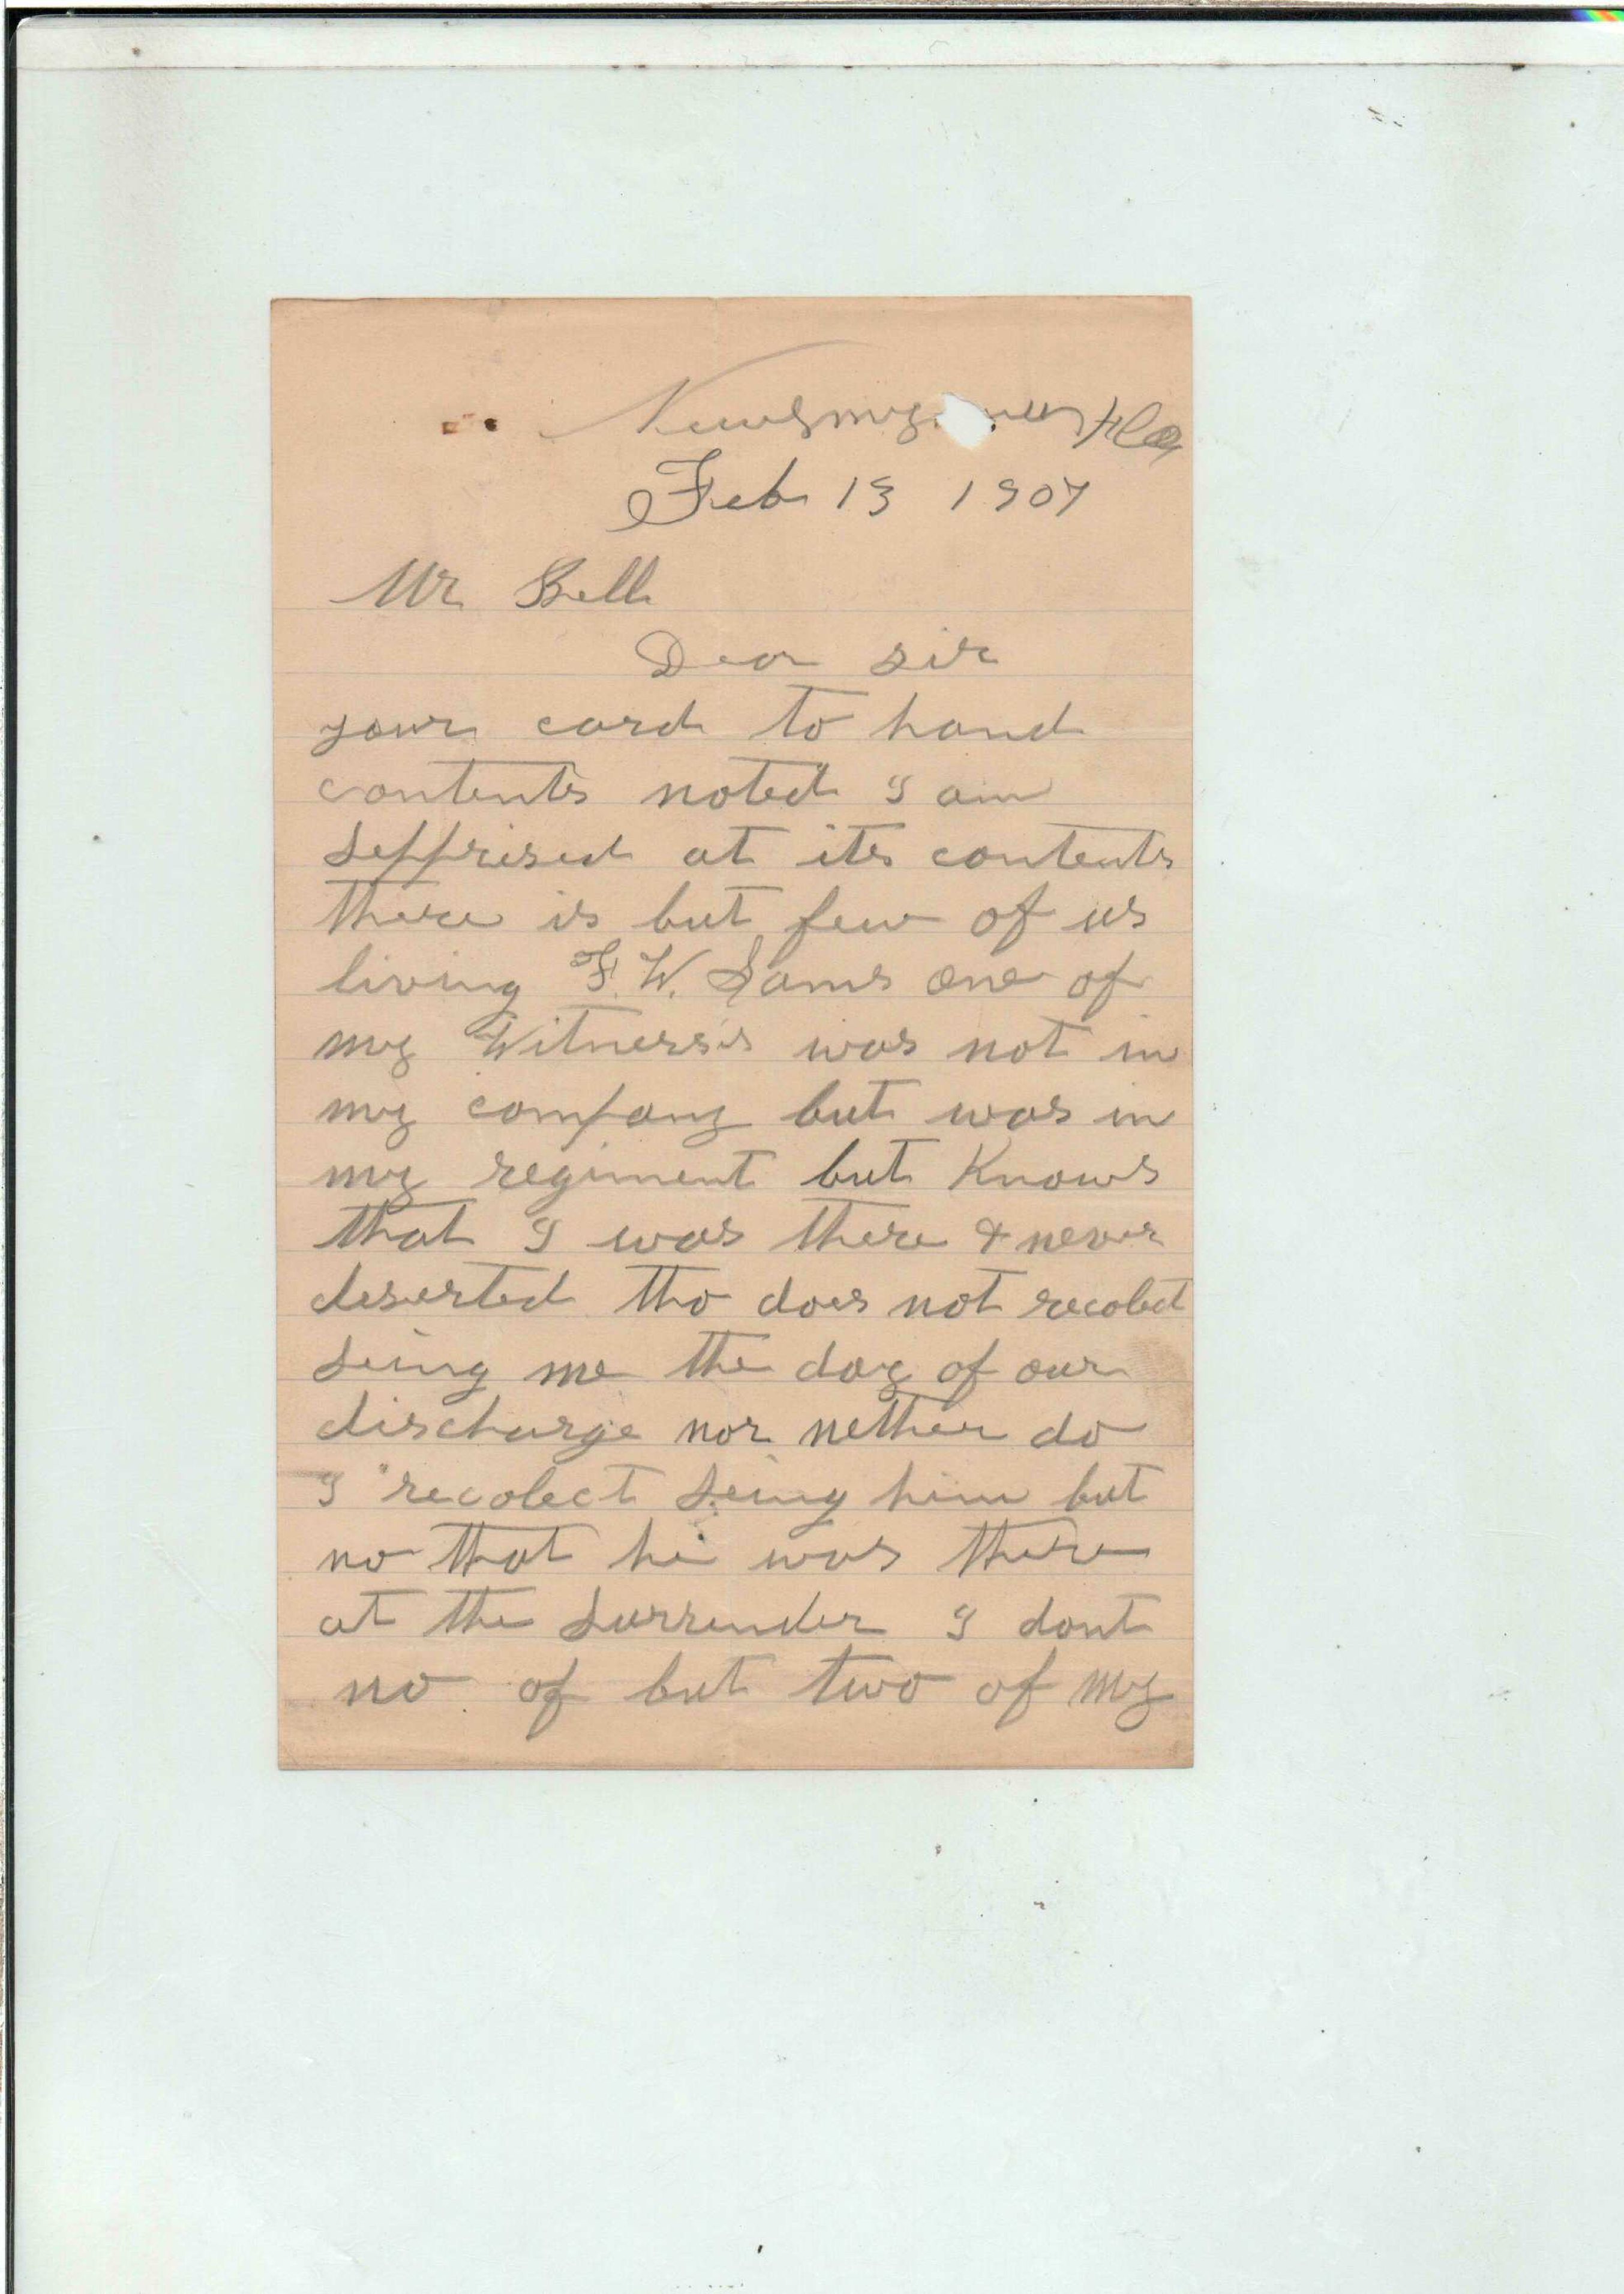 Newsmy Fla
Feb 13 1907
Mr Bell
Dear sir
your card to hand
contents noted I am
sepprised at its contents
there is but few of us
living F. W. Sams one of
my Witnesses was not in
my company but was in
my regiment but Knows
that I was there & never
deserted tho does not recolect
seing me the day of our
discharge nor nether do
I recolect seing him but
no that he was there
at the surrender I dont
no of but two of my